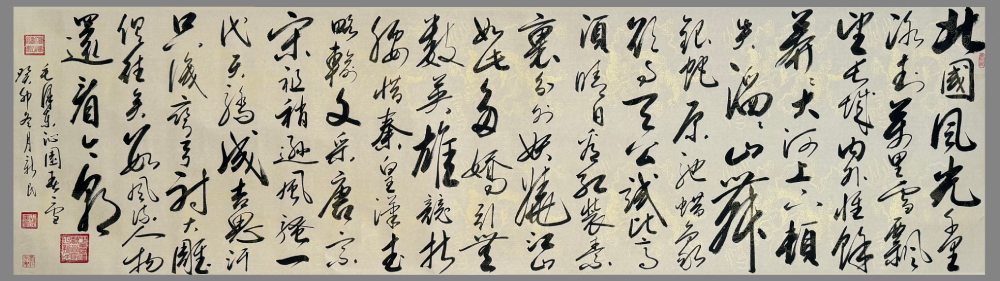 北國風光千里
冰封萬里雪飄
望長城內外惟餘
莽々大河上下頓
失滔々山舞
銀蛇原馳蠟象
欲與天公試比高
須晴日看紅裝素
裹分外妖嬈江山
如此多嬌引無
數英雄競折
腰惜秦皇漢武
略輸文采唐宗
宋祖稍遜風騷一
代天驕成吉思汗
只識彎弓射大雕
俱往矣數風流人物
還看今朝
毛澤東沁園春雪
癸卯冬月新民